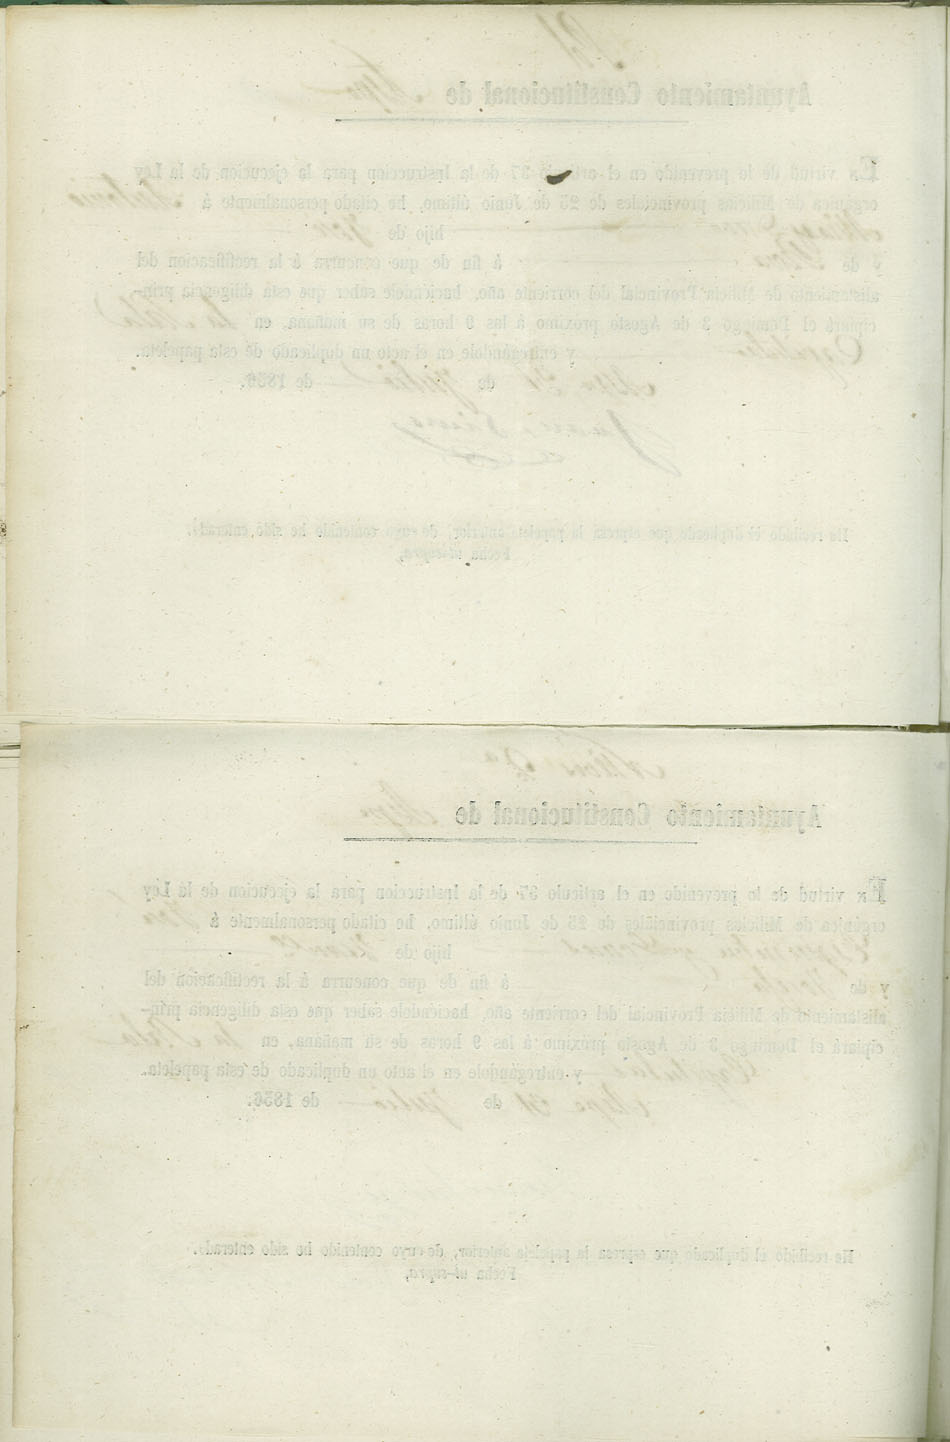 Ayuntamiento Constitucional de Aspe
En virtud de lo prevenido en el artículo 37 de la Instruccion para la ejecucion de la Ley
orgánica de Milicias provinciales de 25 de Junio último, he citado personalmente á Antonio
hijo de José
y de á fin de que concurra á la rectificacion del
alistamiento de Milicia Provincial del corriente año, haciéndole saber que esta diligencia prin-
cipiará el Domingo 3 de Agosto próximo á las 9 horas de su mañana, en la Sala
Capitular y entregándole en el acto un duplicado de esta papeleta.
Aspe 31 de Julio de 1856.
He recibido el duplicado que espresa la papeleta anterior, de cuyo contenido he sido enterado.
Fecha ut-supra,
Ayuntamiento Constitucional de Aspe
En virtud de lo prevenido en el artículo 37 de la Instruccion para la ejecucion de la Ley
orgánica de Milicias provinciales de 25 de Junio último, he citado personalmente á José
hijo de
y de Josefa á fin de que concurra á la rectificacion del
alistamiento de Milicia Provincial del corriente año, haciéndole saber que esta diligencia prin-
cipiará el Domingo 3 de Agosto próximo á las 9 horas de su mañana, en la Sala
Capitular y entregándole en el acto un duplicado de esta papeleta.
Aspe 31 de Julio de 1856.
He recibido el duplicado que espresa la papeleta anterior, de cuyo contenido he sido enterado.
Fecha ut-supra,